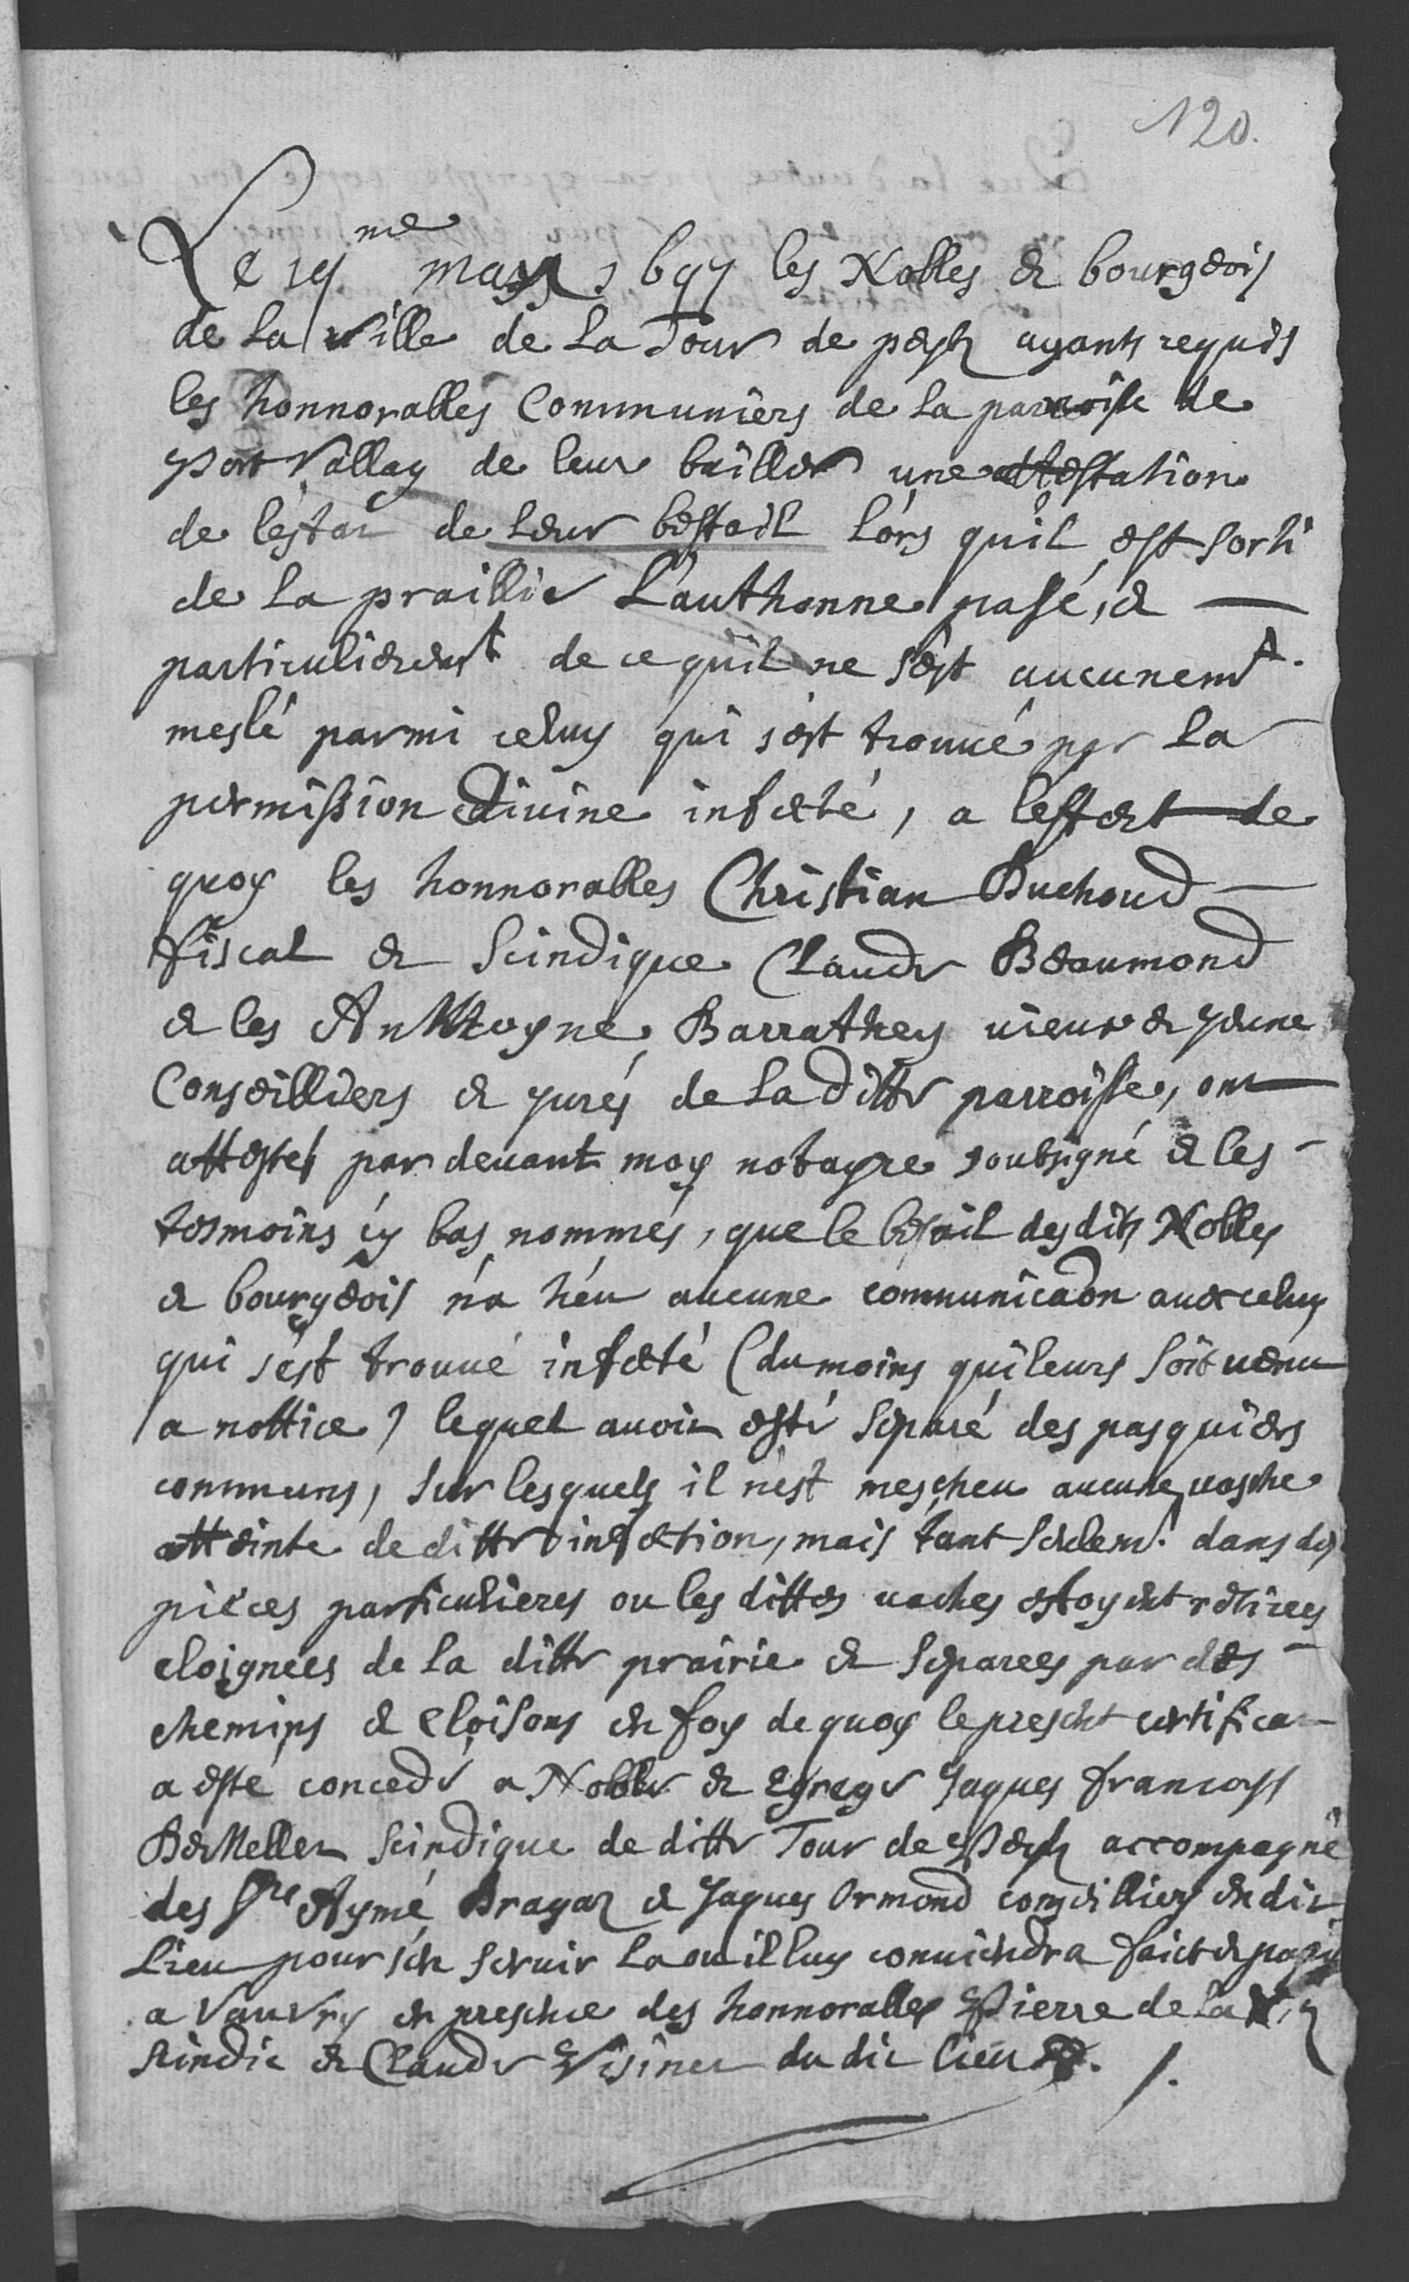 120.
Le 19me may 1697 les Nobles & bourgeois
de la Ville de La Tour de peylz ayants requis
les honnorables Communiers de la parroisse de
port Vallay de leur bailler une attestation
de l'estat de leur bestail lors quil est sorti
de la praillie Lauthonne passé, &
particulieremt de ce quil ne s'est aucunemt.
meslé parmi celuy qui s'est trouué par la
permission diuine infecté, a leffect de
quoy les honnorables Christian Buchoud
fiscal & Scindique Claude Beaumond
& les Anthoyne Barrathey uieux & jeune
Conseilliers & jurés de la ditte parroisse, ont
attesté par deuant moy notayre soubsigné & les
tesmoins cy bas nommés, que le bestail des dits Nobles
& bourgeois n'a héu aucune communicaōn auec celuy
qui s'est trouué infecté (du moins quileurs soit uenu
a nottice) lequel auoit esté separé des pasquiers
communs, sur lesquels il n'est mescheu aucune uasche
atteinte de ditte infection, mais tant seulemt. dans des
pièces particulieres ou les dittes uaches estoyent retirees
eloignées de la ditte prairie & separees par des
chemins & cloisons en foy de quoy le present certificat
a esté concedé a Noble & Egrege Jaques francoys
Scindique de ditte Tour de Peylz accompagné
des Srs Aymé & Jaques Ormond conseilliers en dit
Lieu pour s'en seruir la ou il luy conuiendra faict & passé
a Vauvry en presence des honnorables Pierre de la
scindic & Claude du dit lieu